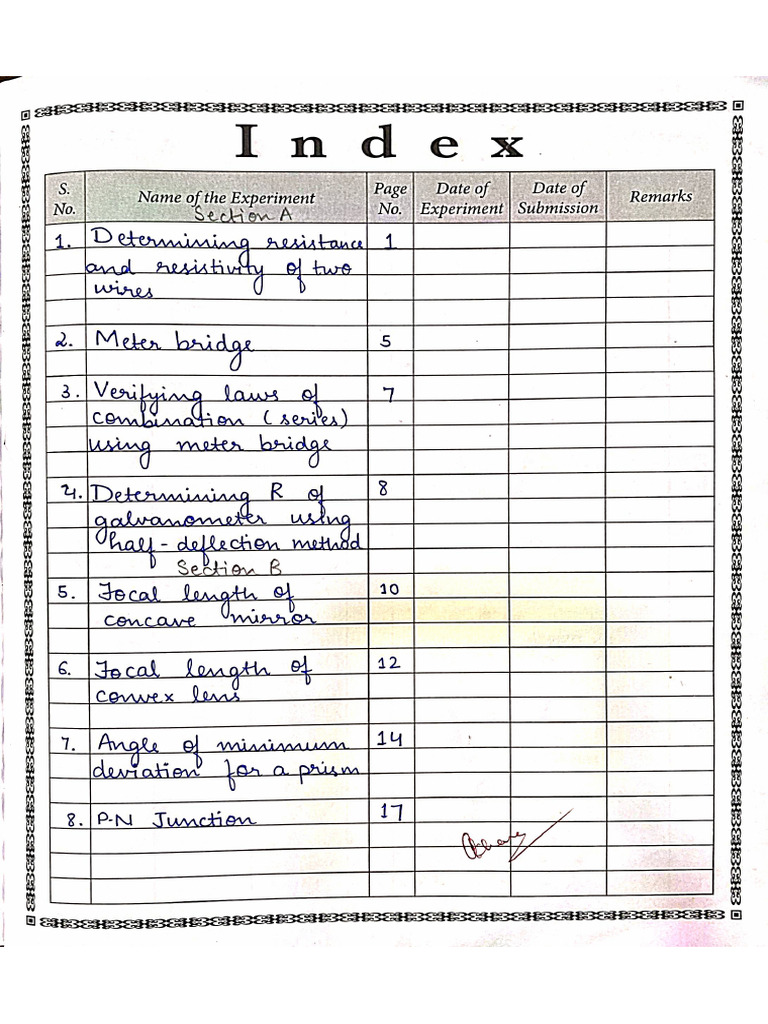 Index
S. No. Name of the Experiment Page No. Date of Experiment Date of Submission Remarks
Section A
1. Determining resistance 1
and resistivity of two
wires
2. Meter bridge 5
3. Verifying laws of 7
combination (series)
using meter bridge
4. Determining R of 8
galvanometer using
half-deflection method
Section B
5. Focal length of 10
concave mirror
6. Focal length of 12
convex lens
7. Angle of minimum 14
deviation for a prism
8. P-N Junction 17